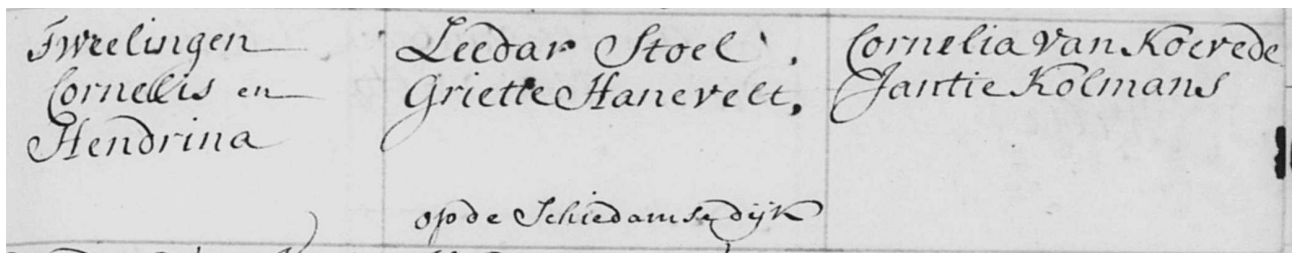 Tweelingen
Cornelis en
Hendrina
Leedar Stoel.
Grietie Hanevelt,
op de Schiedamse dijk
Cornelia van Koerede
Jantie Kolmans